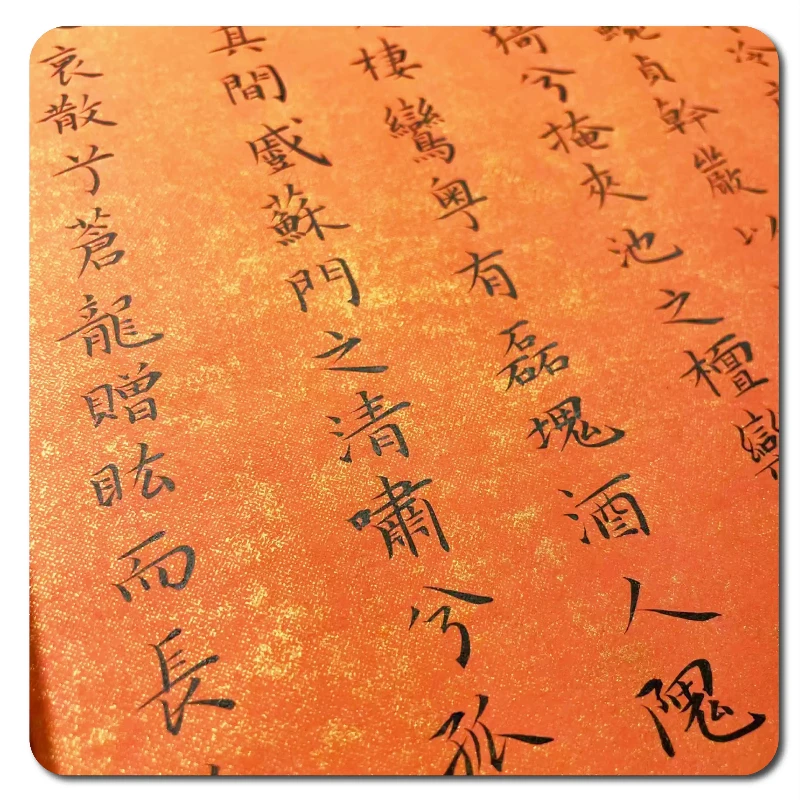 貞幹巖以
猗兮掩夾池之檀欒
棲鸞粤有磊塊酒人隗
其間蘇門之清嘯兮孤
哀散兮蒼龍贈眩而長